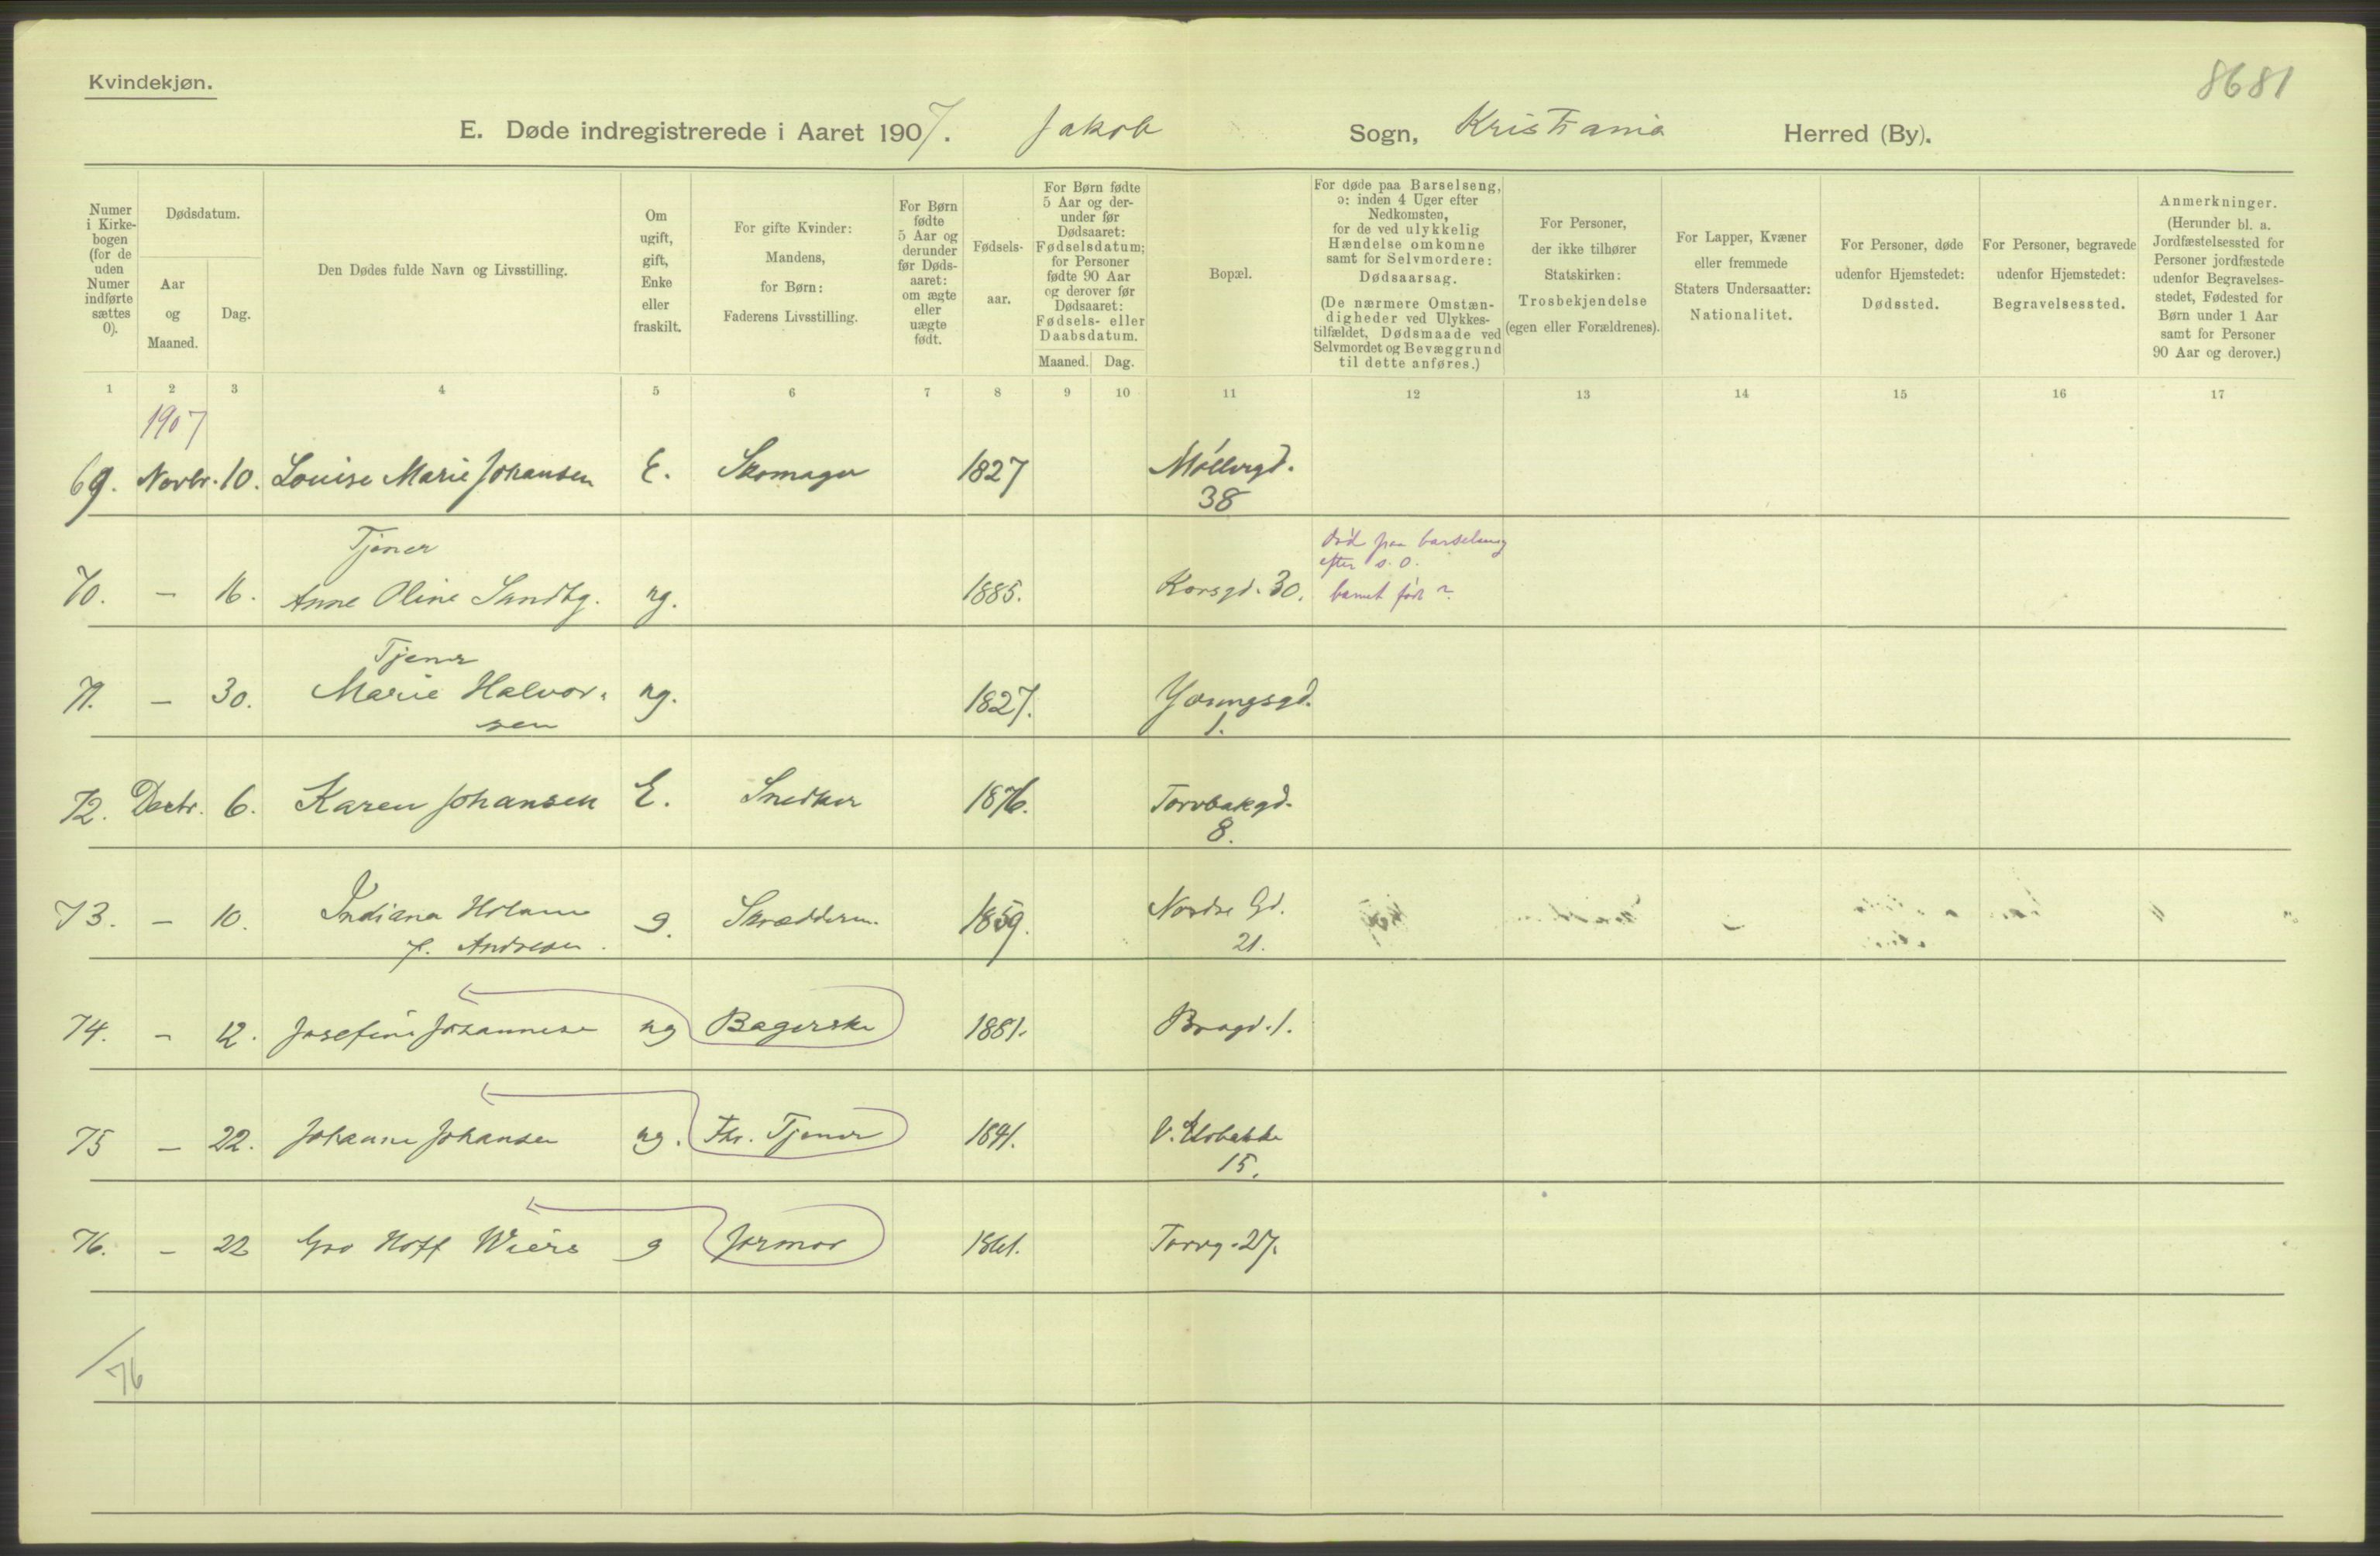 Kvindekjøn.
8681
E. Døde indregistrerede i Aaret 1907. Jakob Sogn, Kristiania Herred (By).
Numer i Kirke-bogen (for de uden Numer indførte sættes 0).
Dødsdatum.
Aar og Maaned.
Dag.
Den Dødes fulde Navn og Livsstilling.
Om ugift, gift, Enke eller fraskilt.
For gifte Kvinder: Mandens, for Børn: Faderens Livsstilling.
For Børn fødte 5 Aar og derunder før Døds-aaret: om ægte eller uægte født.
Fødsels-aar.
For Børn fødte 5 Aar og der-under før Dødsaaret: Fødselsdatum; for Personer fødte 90 Aar og derover før Dødsaaret: Fødsels- eller Daabsdatum.
Maaned. Dag.
Bopæl.
For døde paa Barselseng, ɔ: inden 4 Uger efter Nedkomsten, for de ved ulykkelig Hændelse omkomne samt for Selvmordere: Dødsaarsag.
(De nærmere Omstæn-digheder ved Ulykkes-tilfældet, Dødsmaade ved Selvmordet og Bevæggrund til dette anføres.)
For Personer, der ikke tilhører Statskirken: Trosbekjendelse (egen eller Forældrenes).
For Lapper, Kvæner eller fremmede Staters Undersaatter: Nationalitet.
For Personer, døde udenfor Hjemstedet: Dødssted.
For Personer, begravede udenfor Hjemstedet: Begravelsessted.
Anmerkninger. (Herunder bl. a. Jordfæstelsessted for Personer jordfæstede udenfor Begravelses-stedet, Fødested for Børn under 1 Aar samt for Personer 90 Aar og derover.)
1 2 3 4 5 6 7 8 9 10 11 12 13 14 15 16 17
1907
69. Novbr. 10. Louise Marie Johansen E. Skomager 1827 Møllergd. 38
Tjener
70. – 16. Anne Oline Sandbg. ug. 1885. Korsgd. 30. død paa barselseng
efter s. o.
barnet født ?
Tjener
71. – 30. Marie Halvor-
sen ug. 1827. Youngsgd. 1.
72. Decbr. 6. Karen Johansen E. Snedker 1876. Torvbakgd. 8.
73. – 10. Indiana
f. Andresen. g. Skrædderm. 1859. Nordre Gd. 21.
74. – 12. Josefine Johannese ug Bagerske 1881. Brogd. 1.
75 – 22. Johanne Johansen ug. Fhv. Tjener 1841. V. Elvebakke 15.
76. – 22 Gro Hoff Wiers g Jormor 1861. Torvg. 27.
/76